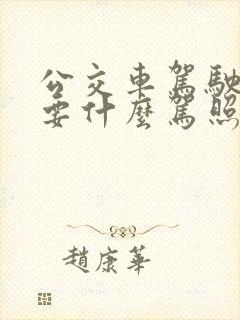 公交車駕駛
要什麼駕照
趙康華